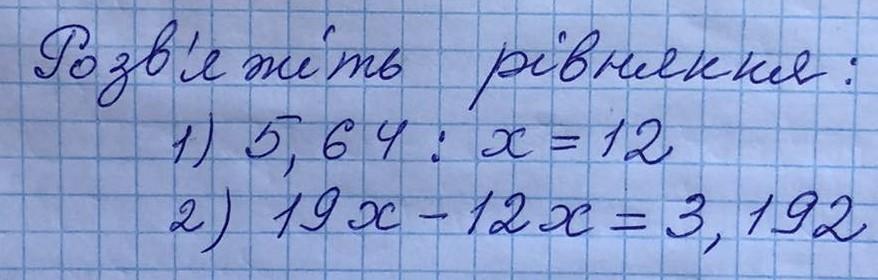 Розв'яжіть рівняння:
1) 5,64 : x = 12
2) 19x - 12x = 3,192